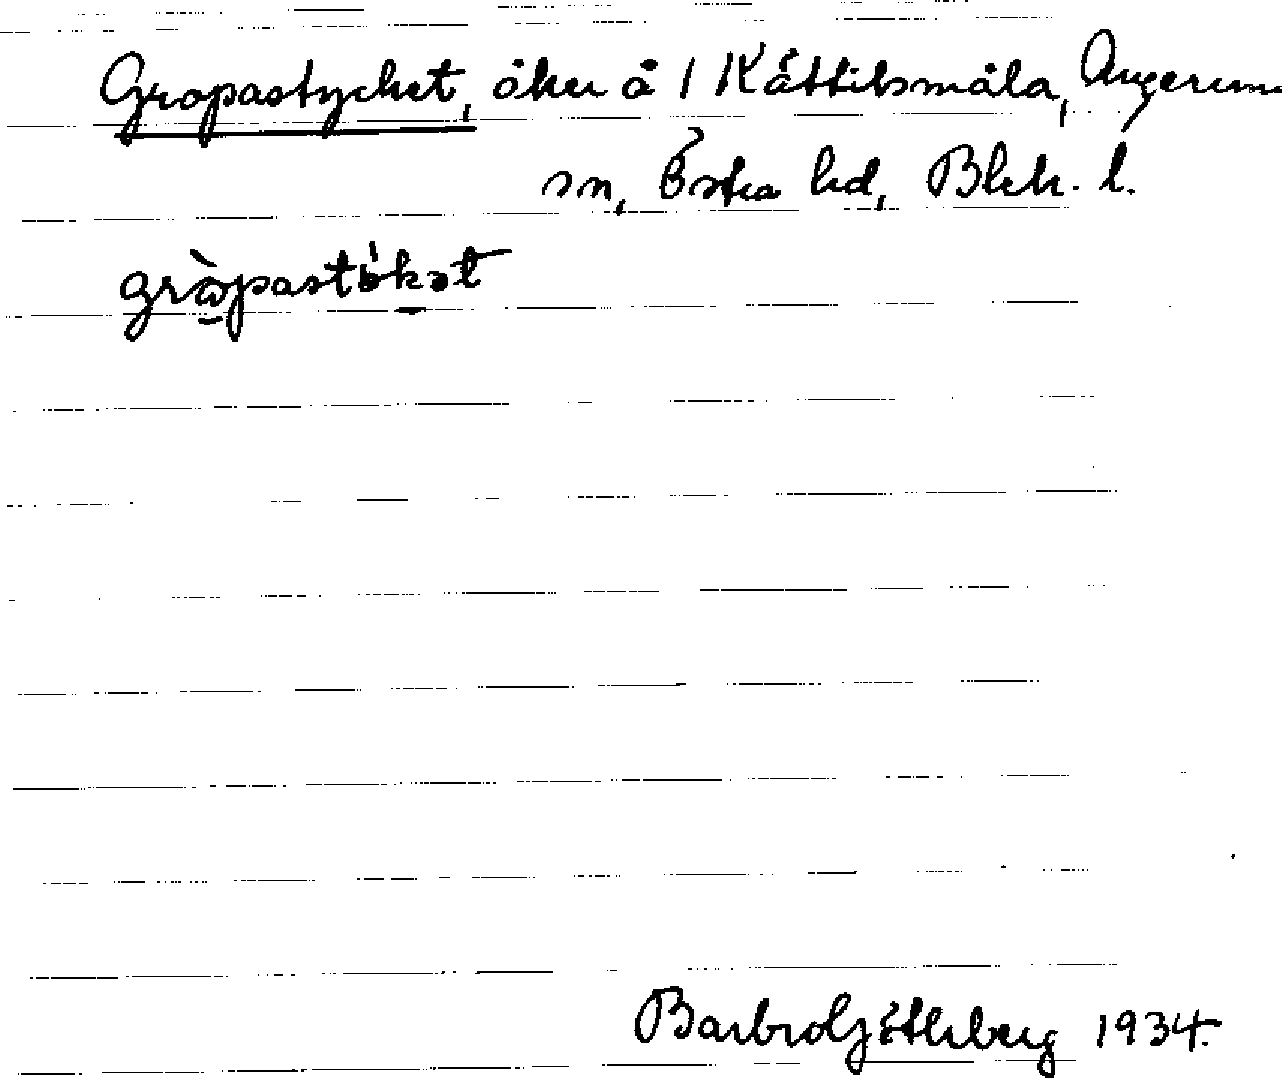 Gropastycket, åker å 1 Kättilsmåla, Augerums
sn, Östra hd, Blek. l.
gròpastỳkət
Barbro Götherberg 1934.